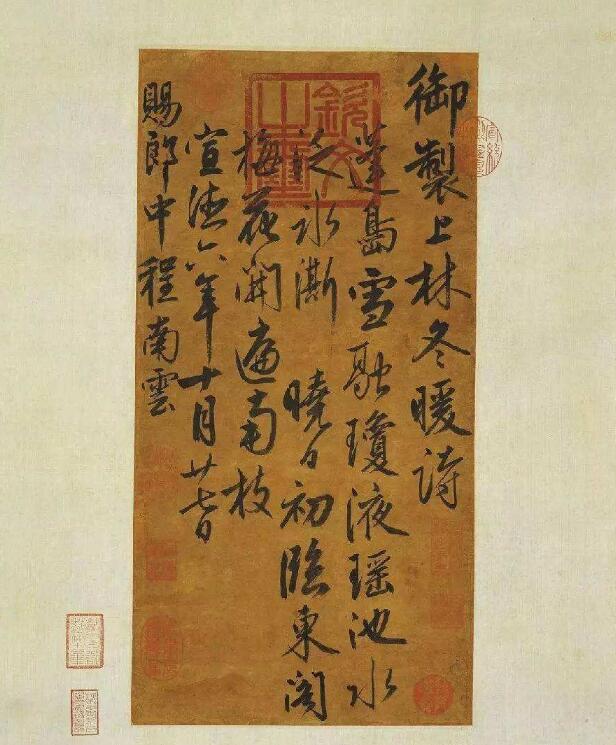 御製上林冬暖詩
蓬島雪融瓊液瑶池水
泛冰澌 曉日初臨東閣
梅花開遍南枝
宣德六年十月廿七日
賜郎中程南雲
欽文之璽